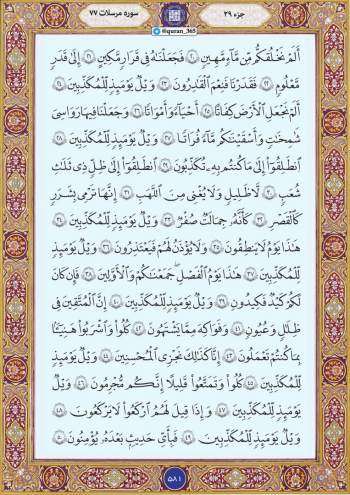 جزء ۲۹
@quran_365
سوره مرسلات ۷۷
أَلَمْ نَخْلُقكُّم مِّن مَّآءٍ مَّهِينٍ ۲۰ فَجَعَلْنَٰهُ فِى قَرَارٍ مَّكِينٍ ۲۱ إِلَىٰ قَدَرٍ
مَّعْلُومٍ ۲۲ فَقَدَرْنَا فَنِعْمَ ٱلْقَٰدِرُونَ ۲۳ وَيْلٌ يَوْمَئِذٍ لِّلْمُكَذِّبِينَ ۲۴
أَلَمْ نَجْعَلِ ٱلْأَرْضَ كِفَاتًا ۲۵ أَحْيَآءً وَأَمْوَٰتًا ۲۶ وَجَعَلْنَا فِيهَا رَوَٰسِىَ
شَٰمِخَٰتٍ وَأَسْقَيْنَٰكُم مَّآءً فُرَاتًا ۲۷ وَيْلٌ يَوْمَئِذٍ لِّلْمُكَذِّبِينَ ۲۸
ٱنطَلِقُوٓا۟ إِلَىٰ مَا كُنتُم بِهِۦ تُكَذِّبُونَ ۲۹ ٱنطَلِقُوٓا۟ إِلَىٰ ظِلٍّ ذِى ثَلَٰثِ
شُعَبٍ ۳۰ لَّا ظَلِيلٍ وَلَا يُغْنِى مِنَ ٱللَّهَبِ ۳۱ إِنَّهَا تَرْمِى بِشَرَرٍ
كَٱلْقَصْرِ ۳۲ كَأَنَّهُۥ جِمَٰلَتٌ صُفْرٌ ۳۳ وَيْلٌ يَوْمَئِذٍ لِّلْمُكَذِّبِينَ ۳۴
هَٰذَا يَوْمُ لَا يَنطِقُونَ ۳۵ وَلَا يُؤْذَنُ لَهُمْ فَيَعْتَذِرُونَ ۳۶ وَيْلٌ يَوْمَئِذٍ
لِّلْمُكَذِّبِينَ ۳۷ هَٰذَا يَوْمُ ٱلْفَصْلِ جَمَعْنَٰكُمْ وَٱلْأَوَّلِينَ ۳۸ فَإِن كَانَ
لَكُمْ كَيْدٌ فَكِيدُونِ ۳۹ وَيْلٌ يَوْمَئِذٍ لِّلْمُكَذِّبِينَ ۴۰ إِنَّ ٱلْمُتَّقِينَ فِى
ظِلَٰلٍ وَعُيُونٍ ۴۱ وَفَوَٰكِهَ مِمَّا يَشْتَهُونَ ۴۲ كُلُوا۟ وَٱشْرَبُوا۟ هَنِيٓـًٔۢا
بِمَا كُنتُمْ تَعْمَلُونَ ۴۳ إِنَّا كَذَٰلِكَ نَجْزِى ٱلْمُحْسِنِينَ ۴۴ وَيْلٌ يَوْمَئِذٍ
لِّلْمُكَذِّبِينَ ۴۵ كُلُوا۟ وَتَمَتَّعُوا۟ قَلِيلًا إِنَّكُم مُّجْرِمُونَ ۴۶ وَيْلٌ
يَوْمَئِذٍ لِّلْمُكَذِّبِينَ ۴۷ وَإِذَا قِيلَ لَهُمُ ٱرْكَعُوا۟ لَا يَرْكَعُونَ ۴۸
وَيْلٌ يَوْمَئِذٍ لِّلْمُكَذِّبِينَ ۴۹ فَبِأَىِّ حَدِيثٍۭ بَعْدَهُۥ يُؤْمِنُونَ ۵۰
۵۸۱